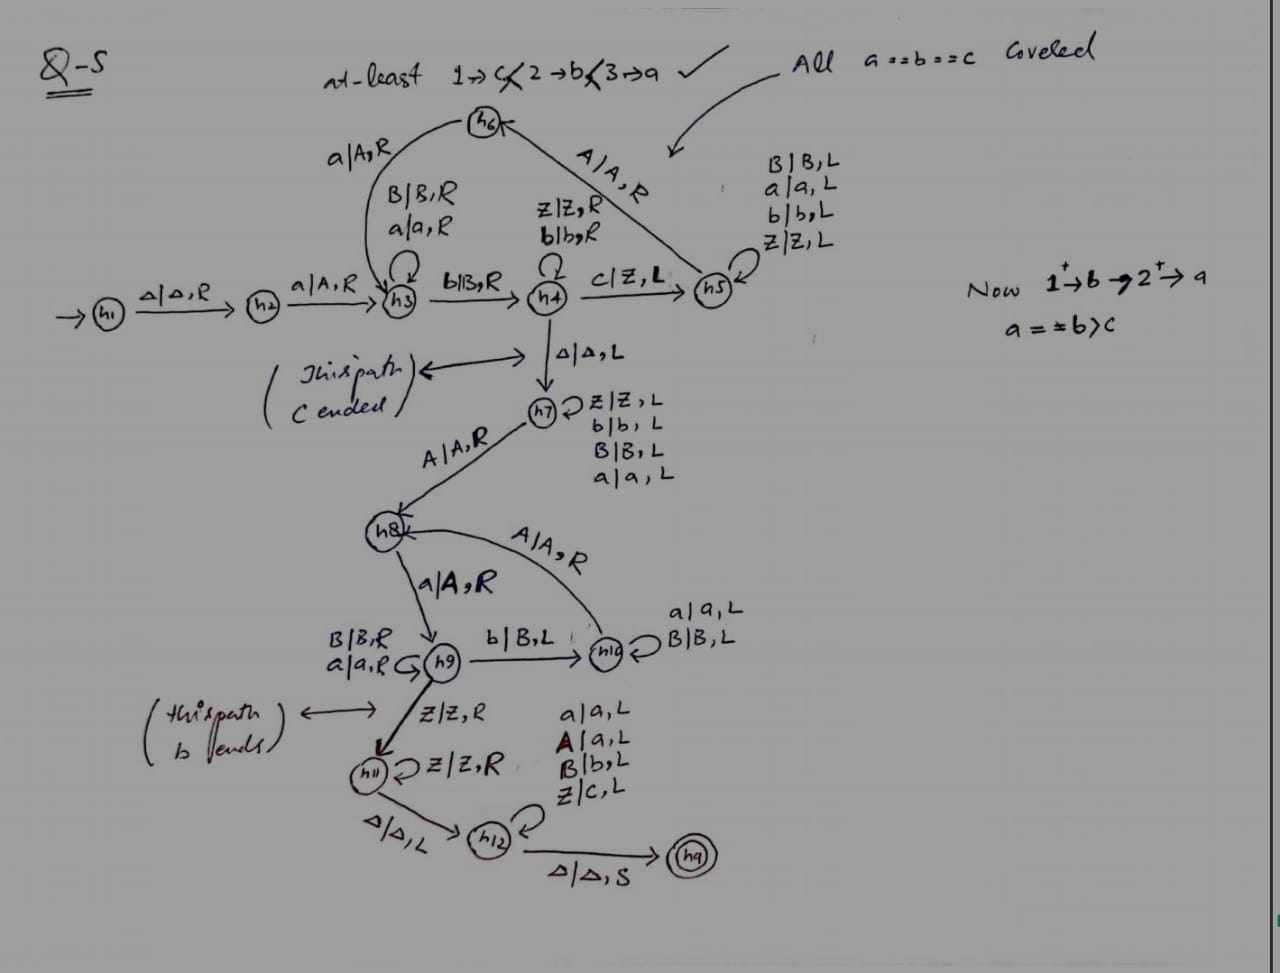 Q-5
at-least 1→c < 2→b < 3→a ✓
All a==b==c Coveled
h6
a|A,R
A|A,R
B|B,R
a|a,R
Z|Z,R
b|b,R
B|B,L
a|a,L
b|b,L
Z|Z,L
→ h1
Δ|Δ,R
h2
a|A,R
h3
b|B,R
h4
c|Z,L
h5
Now 1⁺→b → 2⁺→a
a==b>c
(This path
C ended)
Δ|Δ,L
h7
Z|Z,L
b|b,L
B|B,L
a|a,L
A|A,R
h8
A|A,R
a|A,R
B|B,R
a|a,R
h9
b|B,L
h10
a|a,L
B|B,L
(this path
b ends)
Z|Z,R
h11
Z|Z,R
a|a,L
A|a,L
B|b,L
Z|c,L
Δ|Δ,L
h12
Δ|Δ,S
ha